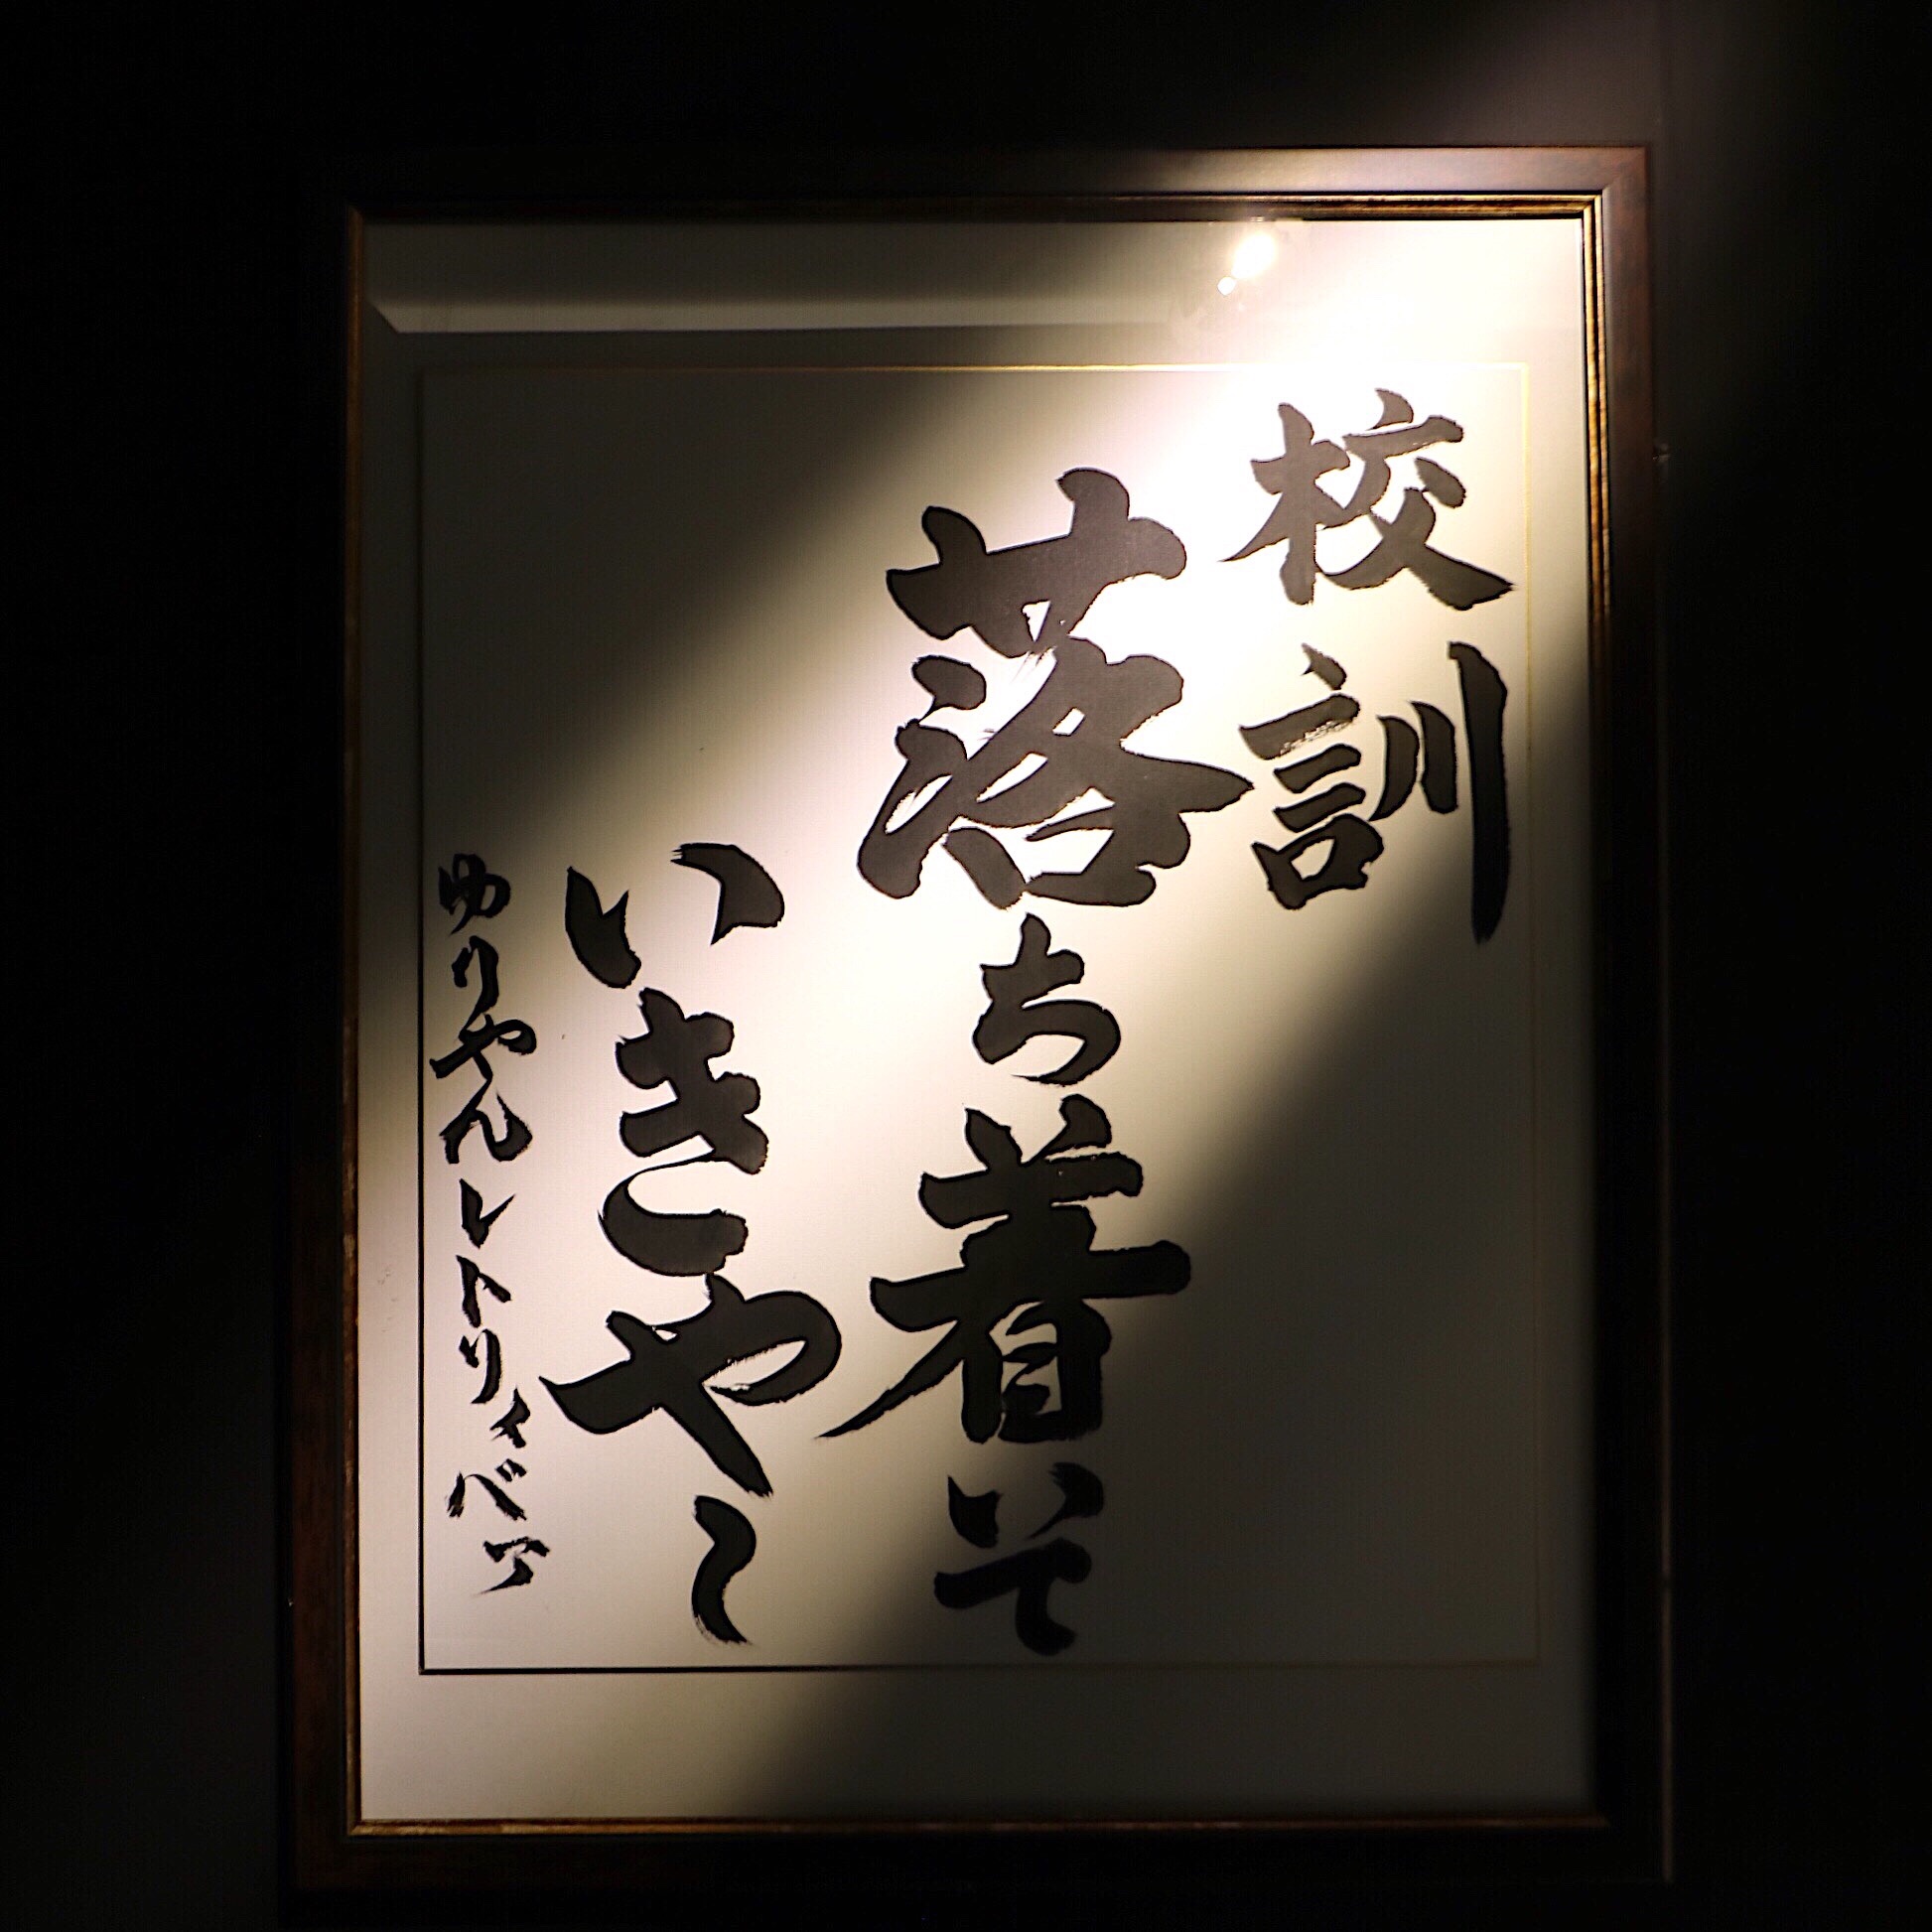 校訓
落ち着いて
いきや〜
ゆりやんレトリィベア